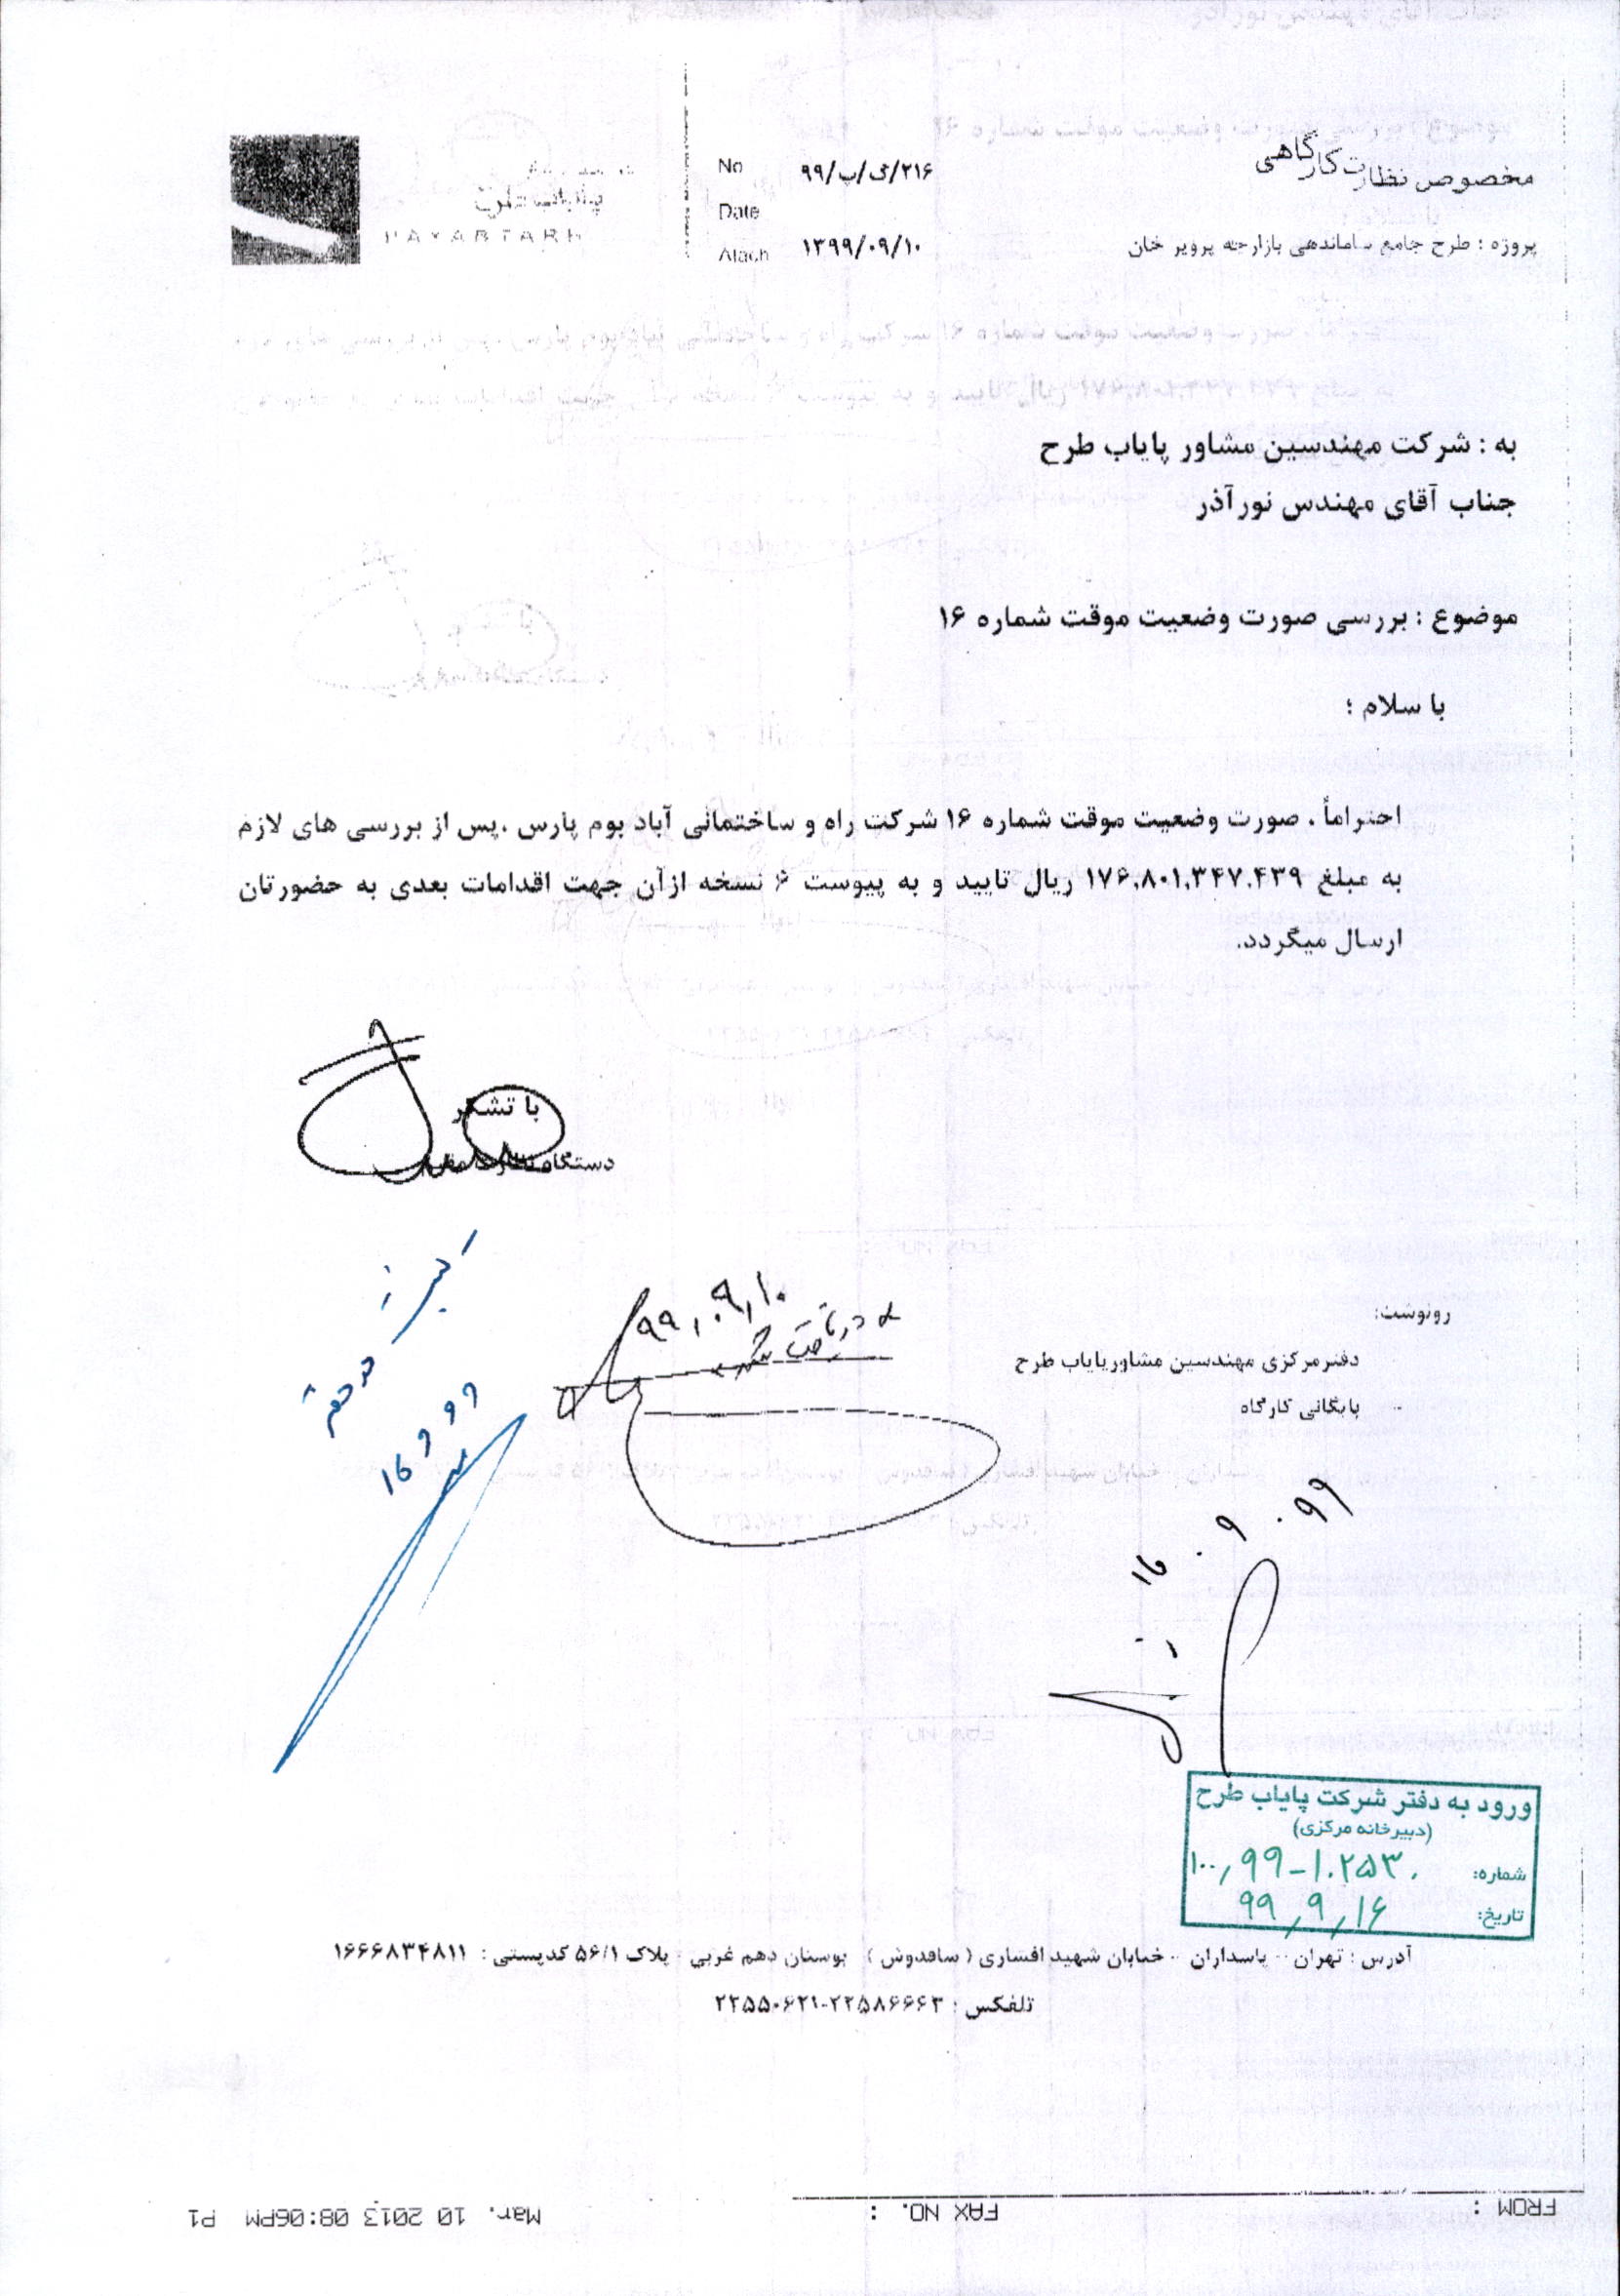 مخصوص نظارت کارگاهی
پروژه : طرح جامع ساماندهی بازارچه پرویز خان
No ۹۹/پ/ک/۲۱۶
Date
Atach ۱۳۹۹/۰۹/۱۰
پایاب طرح
PAYABTARH
به : شرکت مهندسین مشاور پایاب طرح
جناب آقای مهندس نورآذر
موضوع : بررسی صورت وضعیت موقت شماره ۱۶
با سلام ؛
احتراماً ، صورت وضعیت موقت شماره ۱۶ شرکت راه و ساختمانی آباد بوم پارس ،پس از بررسی های لازم
به مبلغ ۱۷۶،۸۰۱،۳۴۷،۴۳۹ ریال تایید و به پیوست ۶ نسخه ازآن جهت اقدامات بعدی به حضورتان
ارسال میگردد.
با تشکر
دستگاه نظارت مقیم
۹۹،۰۹،۱۰
دریافت گردید
رونوشت:
دفترمرکزی مهندسین مشاورپایاب طرح
- بایگانی کارگاه
۹۹ . ۹ . ۱۶
ورود به دفتر شرکت پایاب طرح
(دبیرخانه مرکزی)
شماره: ۱۰۰,۹۹-۱۰۲۵۳۰
تاریخ: ۹۹,۹,۱۶
آدرس : تهران - پاسداران - خیابان شهید افشاری ( ساقدوش ) بوستان دهم غربی - پلاک ۵۶/۱ کدپستی : ۱۶۶۶۸۳۴۸۱۱
تلفکس : ۲۲۵۵۰۶۲۱-۲۲۵۸۶۶۶۳
FROM : FAX NO. : Mar. 10 2013 08:06PM P1